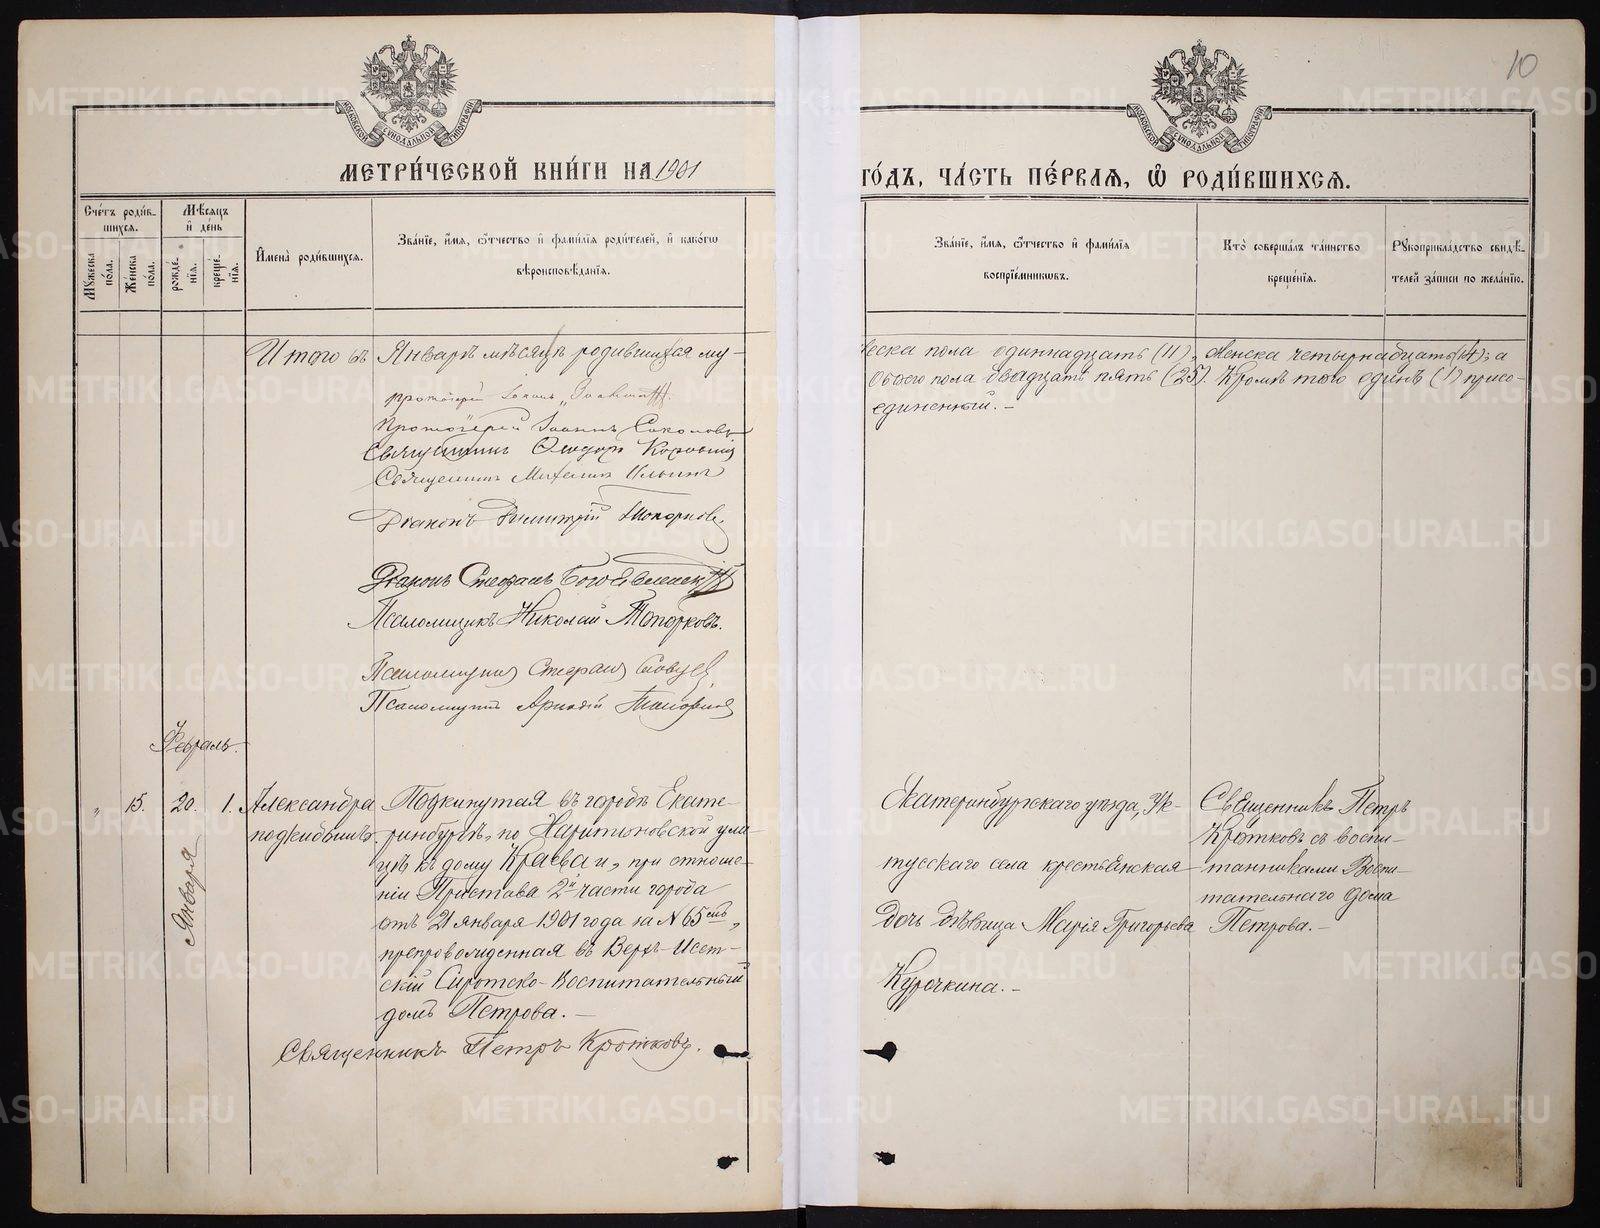 10
МОСКОВСКОЙ СѴНОДАЛЬНОЙ ТИПОГРАФІИ
МОСКОВСКОЙ СѴНОДАЛЬНОЙ ТИПОГРАФІИ
МЕТРИ́ЧЕСКОЙ КНИ́ГИ НА 1901
ГО́ДЪ, ЧА́СТЬ ПЕ́РВАЯ, Ѡ РОДИ́ВШИХСЯ.
Сче́тъ роди́в-
шихся.
Мѣ́сяцъ
и де́нь
Му́жеска по́ла.
Же́нска по́ла.
рожде́-
нія.
креще́-
нія.
Имена̀ роди́вшихся.
Зва́ніе, и́мя, о́тчество и фами́лія роди́телей, и како́гѡ
вѣроисповѣ́данія.
Зва́ніе, и́мя, о́тчество и фами́лія
воспріе́мникѡвъ.
Кто̀ соверша́лъ та́инство
креще́нія.
Рукоприкла́дство свидѣ́-
телей за́писи по жела́нію.
Итого въ Январѣ мѣсяцѣ родившихся му-
жеска пола одиннадцать (11), женска четырнадцать (14); а
обоего пола двадцать пять (25). Кромѣ того одинъ (1) присо-
единенный. –
протоіерей
Протоіерей Іоаннъ Соколовъ
Священникъ Ѳеодоръ
Священникъ Михаилъ Ильинъ
Діаконъ Димитрій Топорковъ
Діаконъ Стефанъ Богоявленскій
Псаломщикъ Николай Топорковъ.
Псаломщикъ Стефанъ
Псаломщикъ Аркадій Топорковъ
Февраль.
" 15. 20. Января 1.
Александра
подкидышъ.
Подкинутая въ городѣ Екате-
ринбургѣ, по Харитоновской ули-
цѣ къ дому Краева и, при отноше-
ніи Пристава 2й части города
отъ 21 января 1901 года за № 65смъ,
препровожденная въ Верхъ-Исет-
скій Сиротско-Воспитательный
домъ Петрова. –
Екатеринбургскаго уѣзда, Ук-
тусскаго села крестьянская
дочь дѣвица Марія Григорьева
Курочкина. –
Священникъ Петръ
Кротковъ съ воспи-
танниками Воспи-
тательнаго дома
Петрова. –
Священникъ Петръ Кротковъ.
METRIKI.GASO-URAL.RU